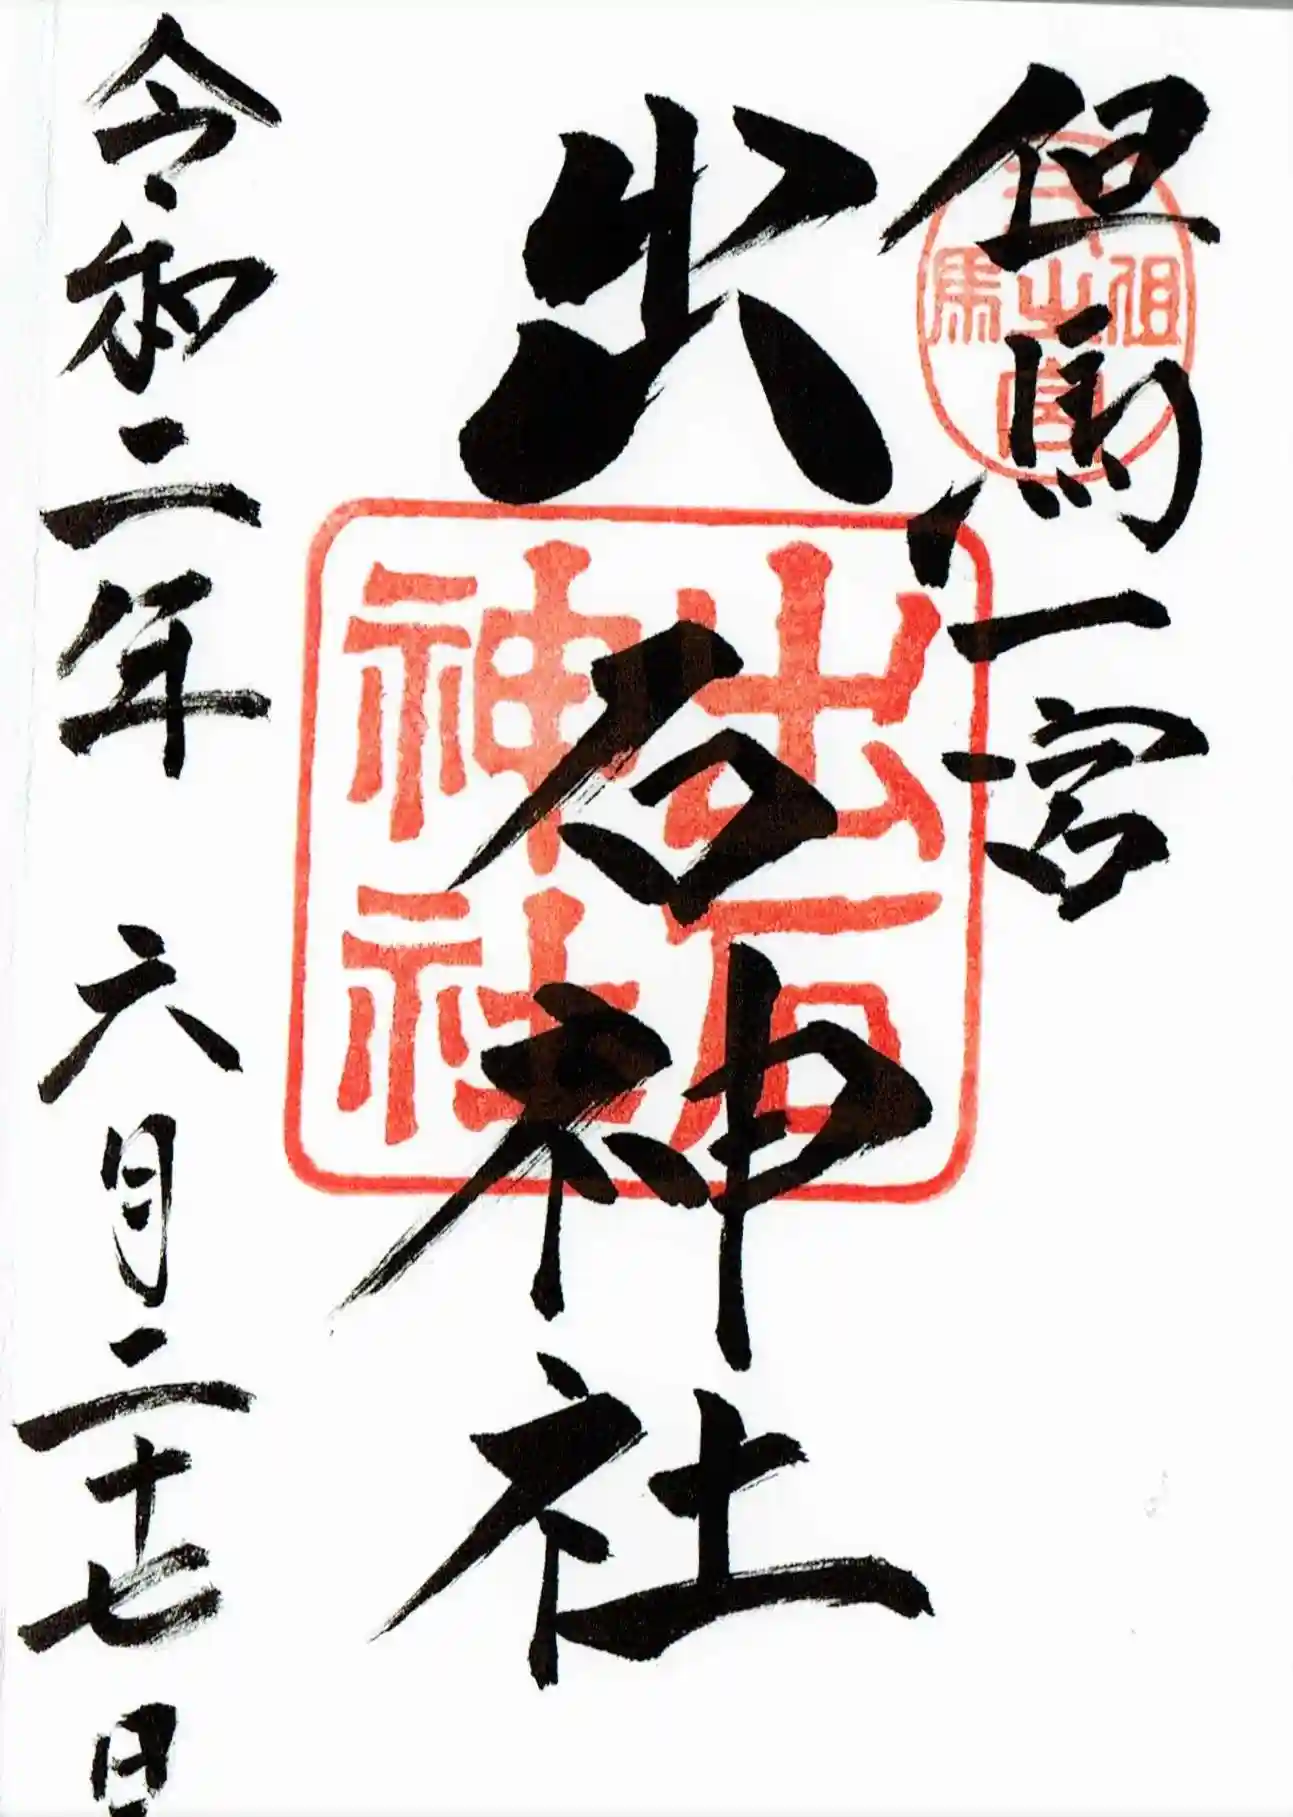 但馬一宮
出石神社
令和二年 六月二十七日
出石
神社